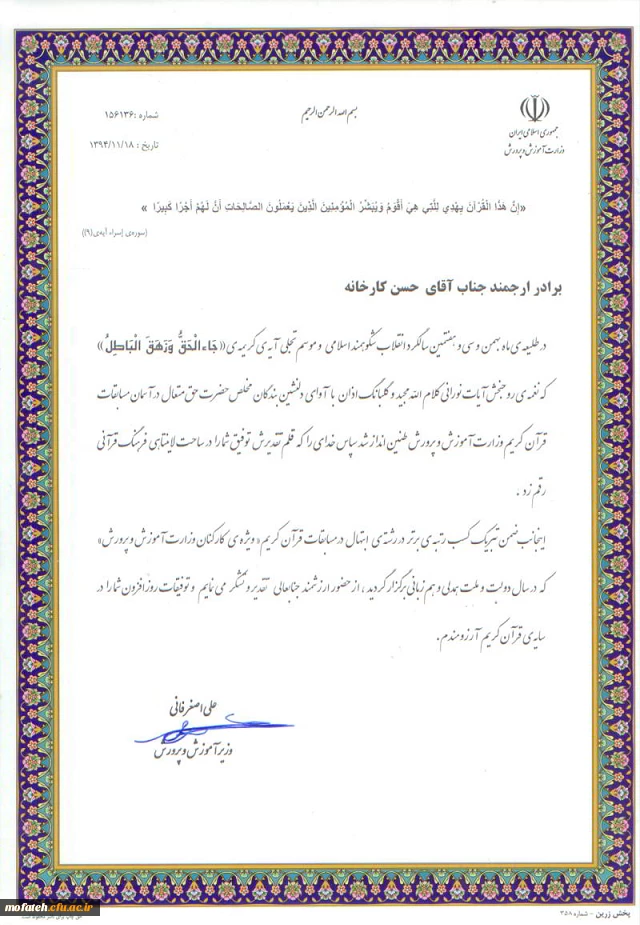 بسم الله الرحمن الرحیم
جمهوری اسلامی ایران
وزارت آموزش و پرورش
شماره :۱۵۶۱۳۶
تاریخ : ۱۳۹۴/۱۱/۱۸
«إِنَّ هَذَا الْقُرْآنَ يِهْدِي لِلَّتِي هِيَ أَقْوَمُ وَيُبَشِّرُ الْمُؤْمِنِينَ الَّذِينَ يَعْمَلُونَ الصَّالِحَاتِ أَنَّ لَهُمْ أَجْرًا كَبِيرًا »
(سوره‌ی إسراء آیه‌ی(۹))
برادر ارجمند جناب آقای حسن کارخانه
در طلیعه‌ی ماه بهمن و سی و هفتمین سالگرد انقلاب شکوهمند اسلامی و موسم تجلی آیه‌ی کریمه‌ی «جَاءَ الْحَقُّ وَزَهَقَ الْبَاطِلُ»
که نغمه‌ی روحبخش آیات نورانی کلام الله مجید و گلبانگ اذان با آوای دلنشین بندگان مخلص حضرت حق متعال در آسمان مسابقات
قرآن کریم وزارت آموزش و پرورش طنین انداز شد سپاس خدای را که قلم تقدیرش توفیق شما را در ساحت لایتناهی فرهنگ قرآنی
رقم زد .
اینجانب ضمن تبریک کسب رتبه‌ی برتر در رشته‌ی ابتهال در مسابقات قرآن کریم« ویژه‌ی کارکنان وزارت آموزش و پرورش»
که در سال دولت و ملت همدلی و هم زبانی برگزار گردید ، از حضور ارزشمند جنابعالی تقدیر و تشکر می نمایم و توفیقات روز افزون شما را در
سایه‌ی قرآن کریم آرزومندم.
علی اصغر فانی
وزیر آموزش و پرورش
mofateh.cfu.ac.ir
پخش زرین - شماره ۳۵۸